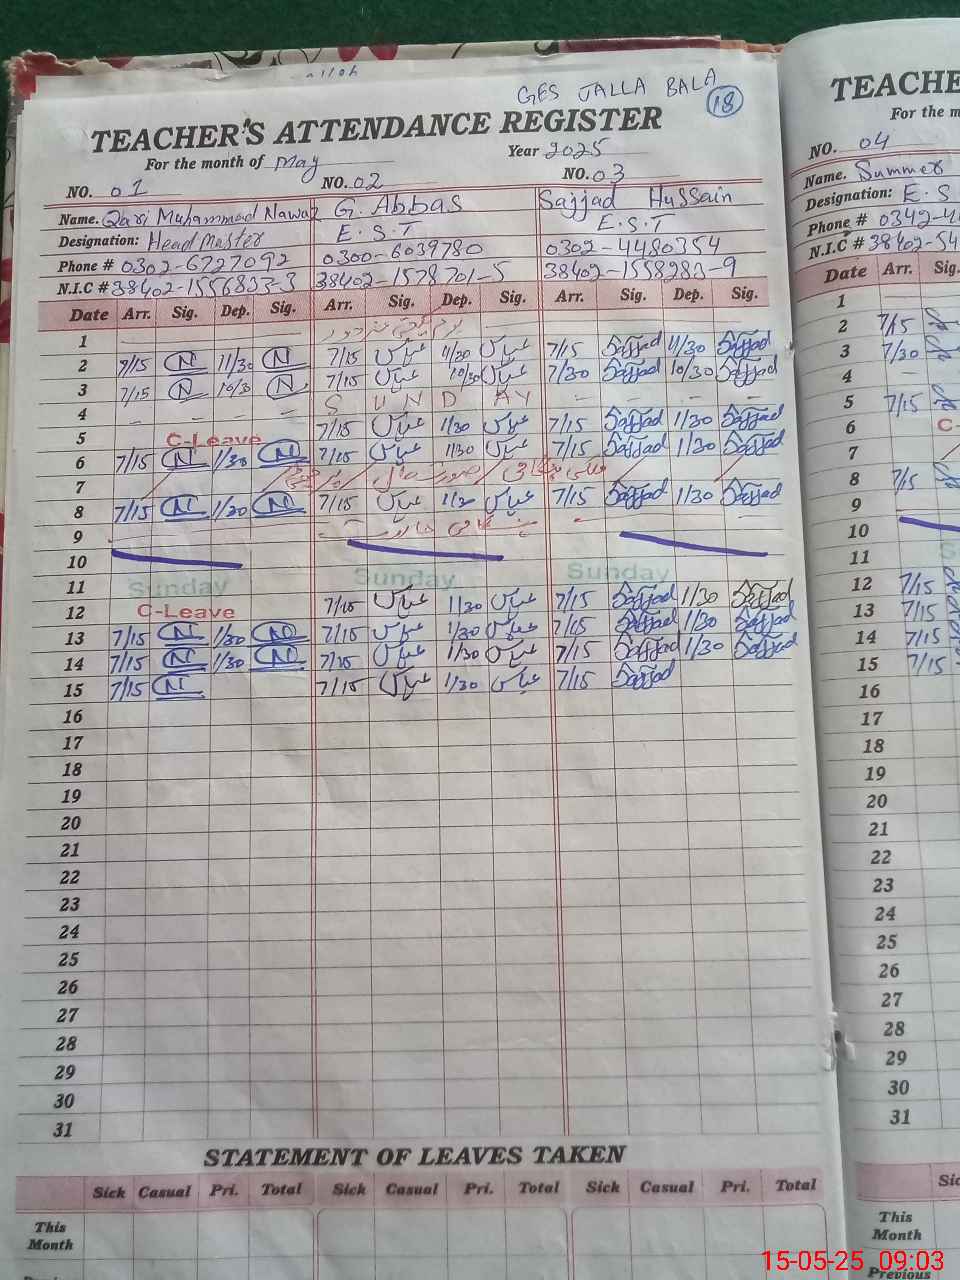 GES JALLA BALA
18
TEACHER'S ATTENDANCE REGISTER
For the month of May Year 2025
NO. 01 NO. 02 NO. 03
Name. Qari Muhammad Nawaz G. Abbas Sajjad Hussain
Designation: Head Master E.S.T E.S.T
Phone # 0302-6727092 0300-6039780 0302-4480354
N.I.C # 38402-1556833-3 38402-1578701-5 38402-1558283-9
Date Arr. Sig. Dep. Sig. Arr. Sig. Dep. Sig. Arr. Sig. Dep. Sig.
1
2 7/15 N 11/30 N 7/15 عباس 11/30 عباس 7/15 Sajjad 11/30 Sajjad
3 7/15 N 10/30 N 7/15 عباس 10/30 عباس 7/30 Sajjad 10/30 Sajjad
4 SUNDAY
5 C-Leave 7/15 عباس 1/30 عباس 7/15 Sajjad 1/30 Sajjad
6 7/15 N 1/30 N 7/15 عباس 1/30 عباس 7/15 Sajjad 1/30 Sajjad
7
8 7/15 N 1/30 N 7/15 عباس 1/30 عباس 7/15 Sajjad 1/30 Sajjad
9
10
11 Sunday Sunday Sunday
12 C-Leave 7/15 عباس 1/30 عباس 7/15 Sajjad 1/30 Sajjad
13 7/15 N 1/30 N 7/15 عباس 1/30 عباس 7/15 Sajjad 1/30 Sajjad
14 7/15 N 1/30 N 7/15 عباس 1/30 عباس 7/15 Sajjad 1/30 Sajjad
15 7/15 N 7/15 عباس 1/30 عباس 7/15 Sajjad
16
17
18
19
20
21
22
23
24
25
26
27
28
29
30
31
STATEMENT OF LEAVES TAKEN
Sick Casual Pri. Total Sick Casual Pri. Total Sick Casual Pri. Total
This
Month
TEACHE
For the m
NO. 04
Name. Summer
Designation: E.S
Phone # 0342-4
N.I.C # 38402-54
Date Arr. Sig.
1
2 7/15
3 7/30
4
5 7/15
6 C-
7
8 7/15
9
10
11 S
12 7/15
13 7/15
14 7/15
15 7/15
16
17
18
19
20
21
22
23
24
25
26
27
28
29
30
31
Sic
This
Month
Previous
15-05-25 09:03